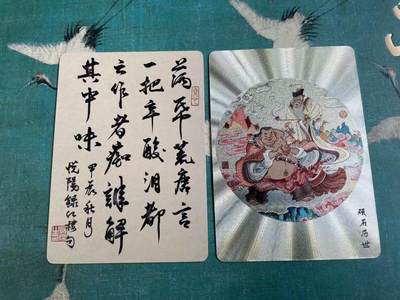 满帋荒唐言
一把辛酸泪都
云作者痴誰解
其中味
甲辰秋月
悦陽録红楼句
頑石历世